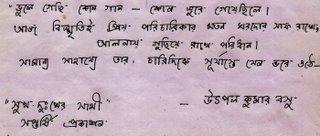 "ভুলে গেছি কোন গান – কোন সুরে গেয়েছিলে।
আজ বিস্মৃতিই প্রিয় পরিচারিকার মতন ঘরদোর সাফ রাখে,
আলনায় গুছিয়ে রাখে পরিধান।
সামান্য সাহায্যে তার, চারিদিকে সূর্যাস্ত যেন ভরে ওঠে—
"সুখ-দুঃখের সাথী" – উৎপল কুমার বসু
সপ্তর্ষি প্রকাশন